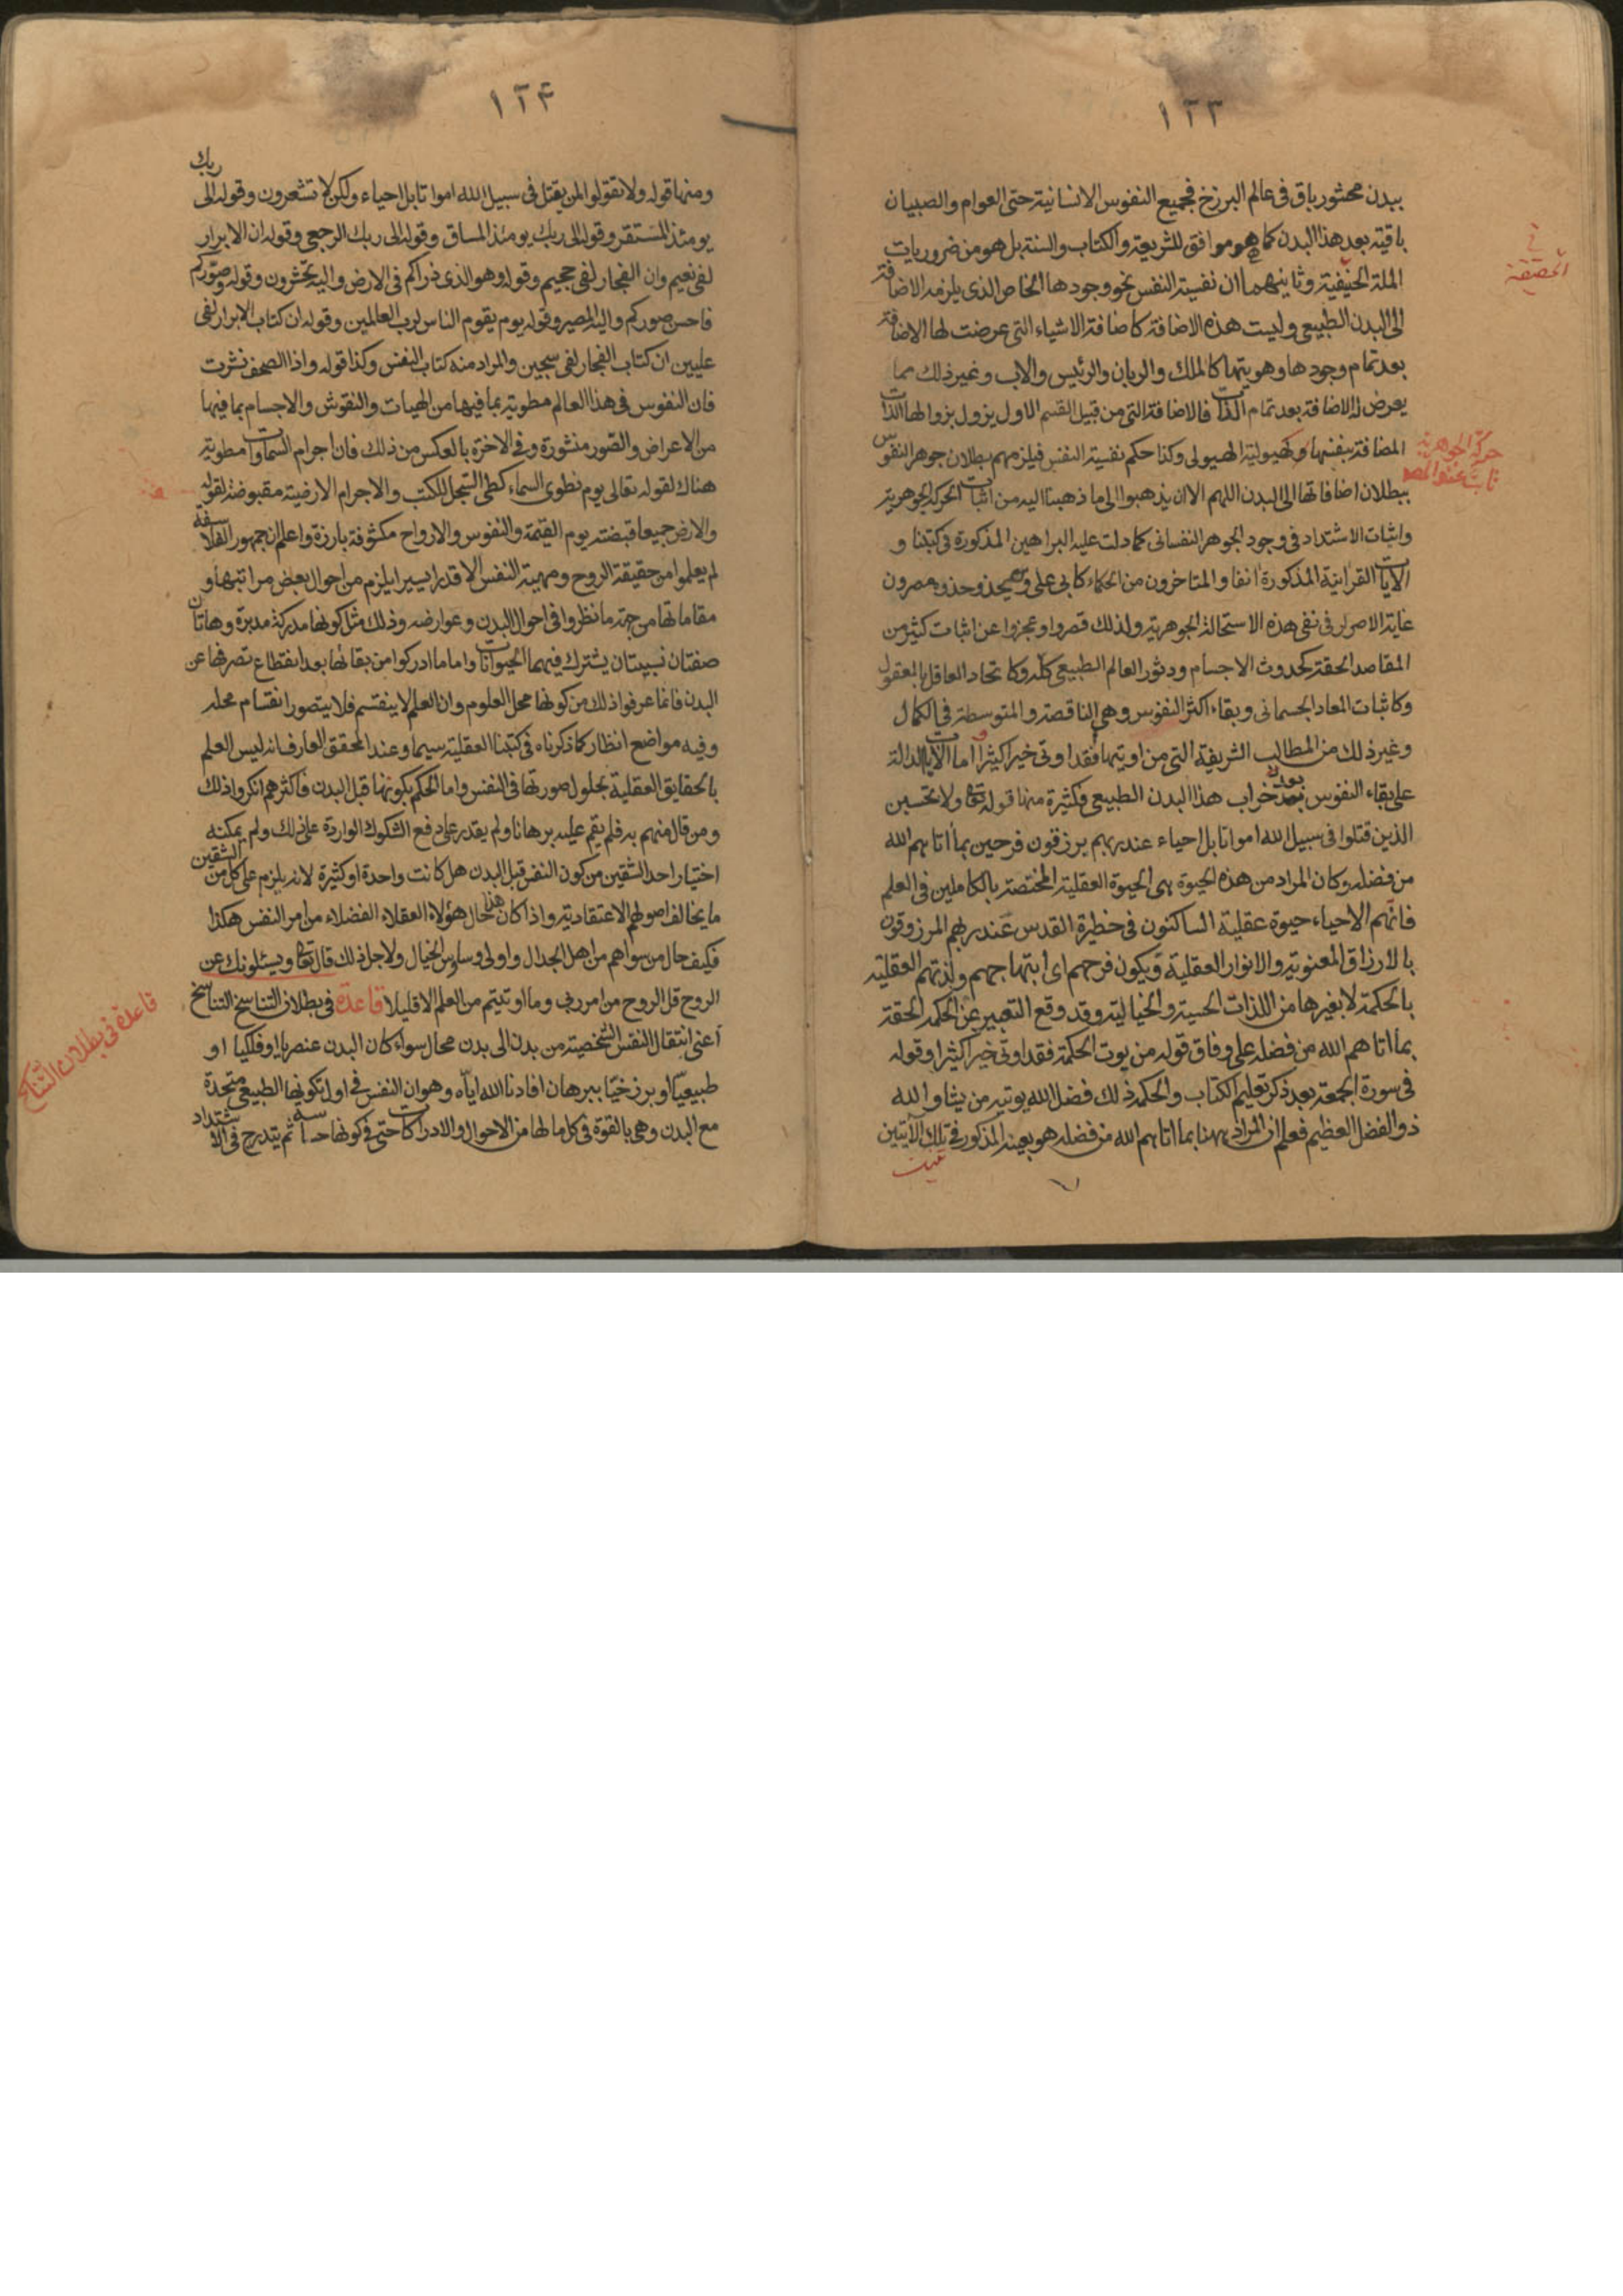 ١٢٣
ببدن محشور باق فى عالم البرزخ فجميع النفوس الانسانية حتى العوام والصبيان
باقية بعد هذا البدن كما هو موافق للشريعة والكتاب والسنة بل هو من ضروريات
الملة الحنيفية وثانيهما ان نفسية النفس نحو وجودها الخاص الذى يلزمه الاضافة
الى البدن الطبيعى وليست هذه الاضافة كاضافة الاشياء التى عرضت لها الاضافة
بعد تمام وجودها وهويتها كالملك والربان والرئيس والاب وغير ذلك مما
يعرض له الاضافة بعد تمام الذات فالاضافة التى من قبيل القسم الاول يزول بزوالها الذات
المضافة بنفسها كهيولية الهيولى وكذا حكم نفسية النفس فيلزمهم بطلان جوهر النفوس
ببطلان اضافاتها الى البدن اللهم الا ان يذهبوا الى ما ذهبنا اليه من اثبات الحركة الجوهرية
واثبات الاشتداد فى وجود الجوهر النفسانى كما دلت عليه البراهين المذكورة فى كتبنا و
الايات القرانية المذكورة انفا والمتاخرون من الحكماء كابى على ومن يحذو حذوه مصرون
غاية الاصرار فى نفى هذه الاستحالة الجوهرية ولذلك قصروا وعجزوا عن اثبات كثير من
المقاصد الحقة كحدوث الاجسام ودثور العالم الطبيعى كله وكاتحاد العاقل بالمعقول
وكاثبات المعاد الجسمانى وبقاء اكثر النفوس وهى الناقصة والمتوسطة فى الكمال
وغير ذلك من المطالب الشريفة التى من اوتيها فقد اوتى خيرا كثيرا واما الايات الدالة
على بقاء النفوس بعد خراب هذا البدن الطبيعى فكثيرة منها قوله تعالى ولا تحسبن
الذين قتلوا فى سبيل الله امواتا بل احياء عند ربهم يرزقون فرحين بما اتاهم الله
من فضله وكان المراد من هذه الحيوة هى الحيوة العقلية المختصة بالكاملين فى العلم
فانهم الاحياء حيوة عقلية الساكنون فى حظيرة القدس عند ربهم المرزوقون
بالارزاق المعنوية والانوار العقلية ويكون فرحهم اى ابتهاجهم ولذتهم العقلية
بالحكمة لا بغيرها من اللذات الحسية والخيالية وقد وقع التعبير عن الحكمة الحقة
بما اتاهم الله من فضله على وفاق قوله من يوت الحكمة فقد اوتى خيرا كثيرا وقوله
فى سورة الجمعة بعد ذكر تعليم الكتاب والحكمة ذلك فضل الله يوتيه من يشاء والله
ذو الفضل العظيم فعلم ان المراد ههنا بما اتاهم الله من فضله هو بعينه المذكور فى تلك الآيتين
حركة الجوهرية
ثابت عند المصـ
١٢۴
ومنها قوله ولا تقولوا لمن يقتل فى سبيل الله اموات بل احياء ولكن لا تشعرون وقوله الى ربك
يومئذ المستقر وقوله الى ربك يومئذ المساق وقوله الى ربك الرجعى وقوله ان الابرار
لفى نعيم وان الفجار لفى جحيم وقوله وهو الذى ذراكم فى الارض واليه تحشرون وقوله وصوركم
فاحسن صوركم واليه المصير وقوله يوم يقوم الناس لرب العالمين وقوله ان كتاب الابرار لفى
عليين ان كتاب الفجار لفى سجين والمراد منه كتاب النفس وكذا قوله واذا الصحف نشرت
فان النفوس فى هذا العالم مطوية بما فيها من الهيات والنقوش والاجسام بما فيها
من الاعراض والصور منشورة وفى الاخرة بالعكس من ذلك فان اجرام السماوات مطوية
هناك لقوله تعالى يوم نطوى السماء كطى السجل للكتب والاجرام الارضية مقبوضة لقوله
والارض جميعا قبضته يوم القيمة والنفوس والارواح مكشوفة بارزة واعلم ان جمهور الفلاسفة
لم يعلموا من حقيقة الروح ومهية النفس الا قدرا يسيرا يلزم من احوال بعض مراتبها و
مقاماتها من جهة ما نظروا فى احوال البدن وعوارضه وذلك مثل كونها مدركة مدبرة وهاتان
صفتان نسبيتان يشترك فيهما الحيوانات واما ما ادركوا من بقائها بعد انقطاع تصرفها عن
البدن فانما عرفوا ذلك من كونها محل العلوم وان العلم لا ينقسم فلا يتصور انقسام محله
وفيه مواضع انظار كما ذكرناه فى كتبنا العقلية سيما وعند المحقق العارف انه ليس العلم
بالحقايق العقلية بحلول صورتها فى النفس واما الحكم بكونها قبل البدن فاكثرهم انكروا ذلك
ومن قال منهم به فلم يقم عليه برهانا ولم يقدر على دفع الشكوك الواردة على ذلك ولم يمكنه
اختيار احد الشقين من كون النفس قبل البدن هل كانت واحدة او كثيرة لانه يلزم على كل من الشقين
ما يخالف اصولهم الاعتقادية واذا كان هذا حال هؤلاء العقلاء الفضلاء من امر النفس هكذا
فكيف حال من سواهم من اهل الجدال واولى وساوس الخيال ولاجل ذلك قال تعالى ويسئلونك عن
الروح قل الروح من امر ربى وما اوتيتم من العلم الا قليلا قاعدة فى بطلان التناسخ التناسخ
اعنى انتقال النفس الشخصية من بدن الى بدن محال سواء كان البدن عنصريا او فلكيا او
طبيعيا او برزخيا ببرهان افادنا الله اياه وهو ان النفس فى اول تكونها الطبيعى متحدة
مع البدن وهى بالقوة فى كل ما لها من الاحوال والادراكات حتى فى كونها حساسة ثم يتدرج فى الاشتداد
قاعدة فى بطلان التناسخ